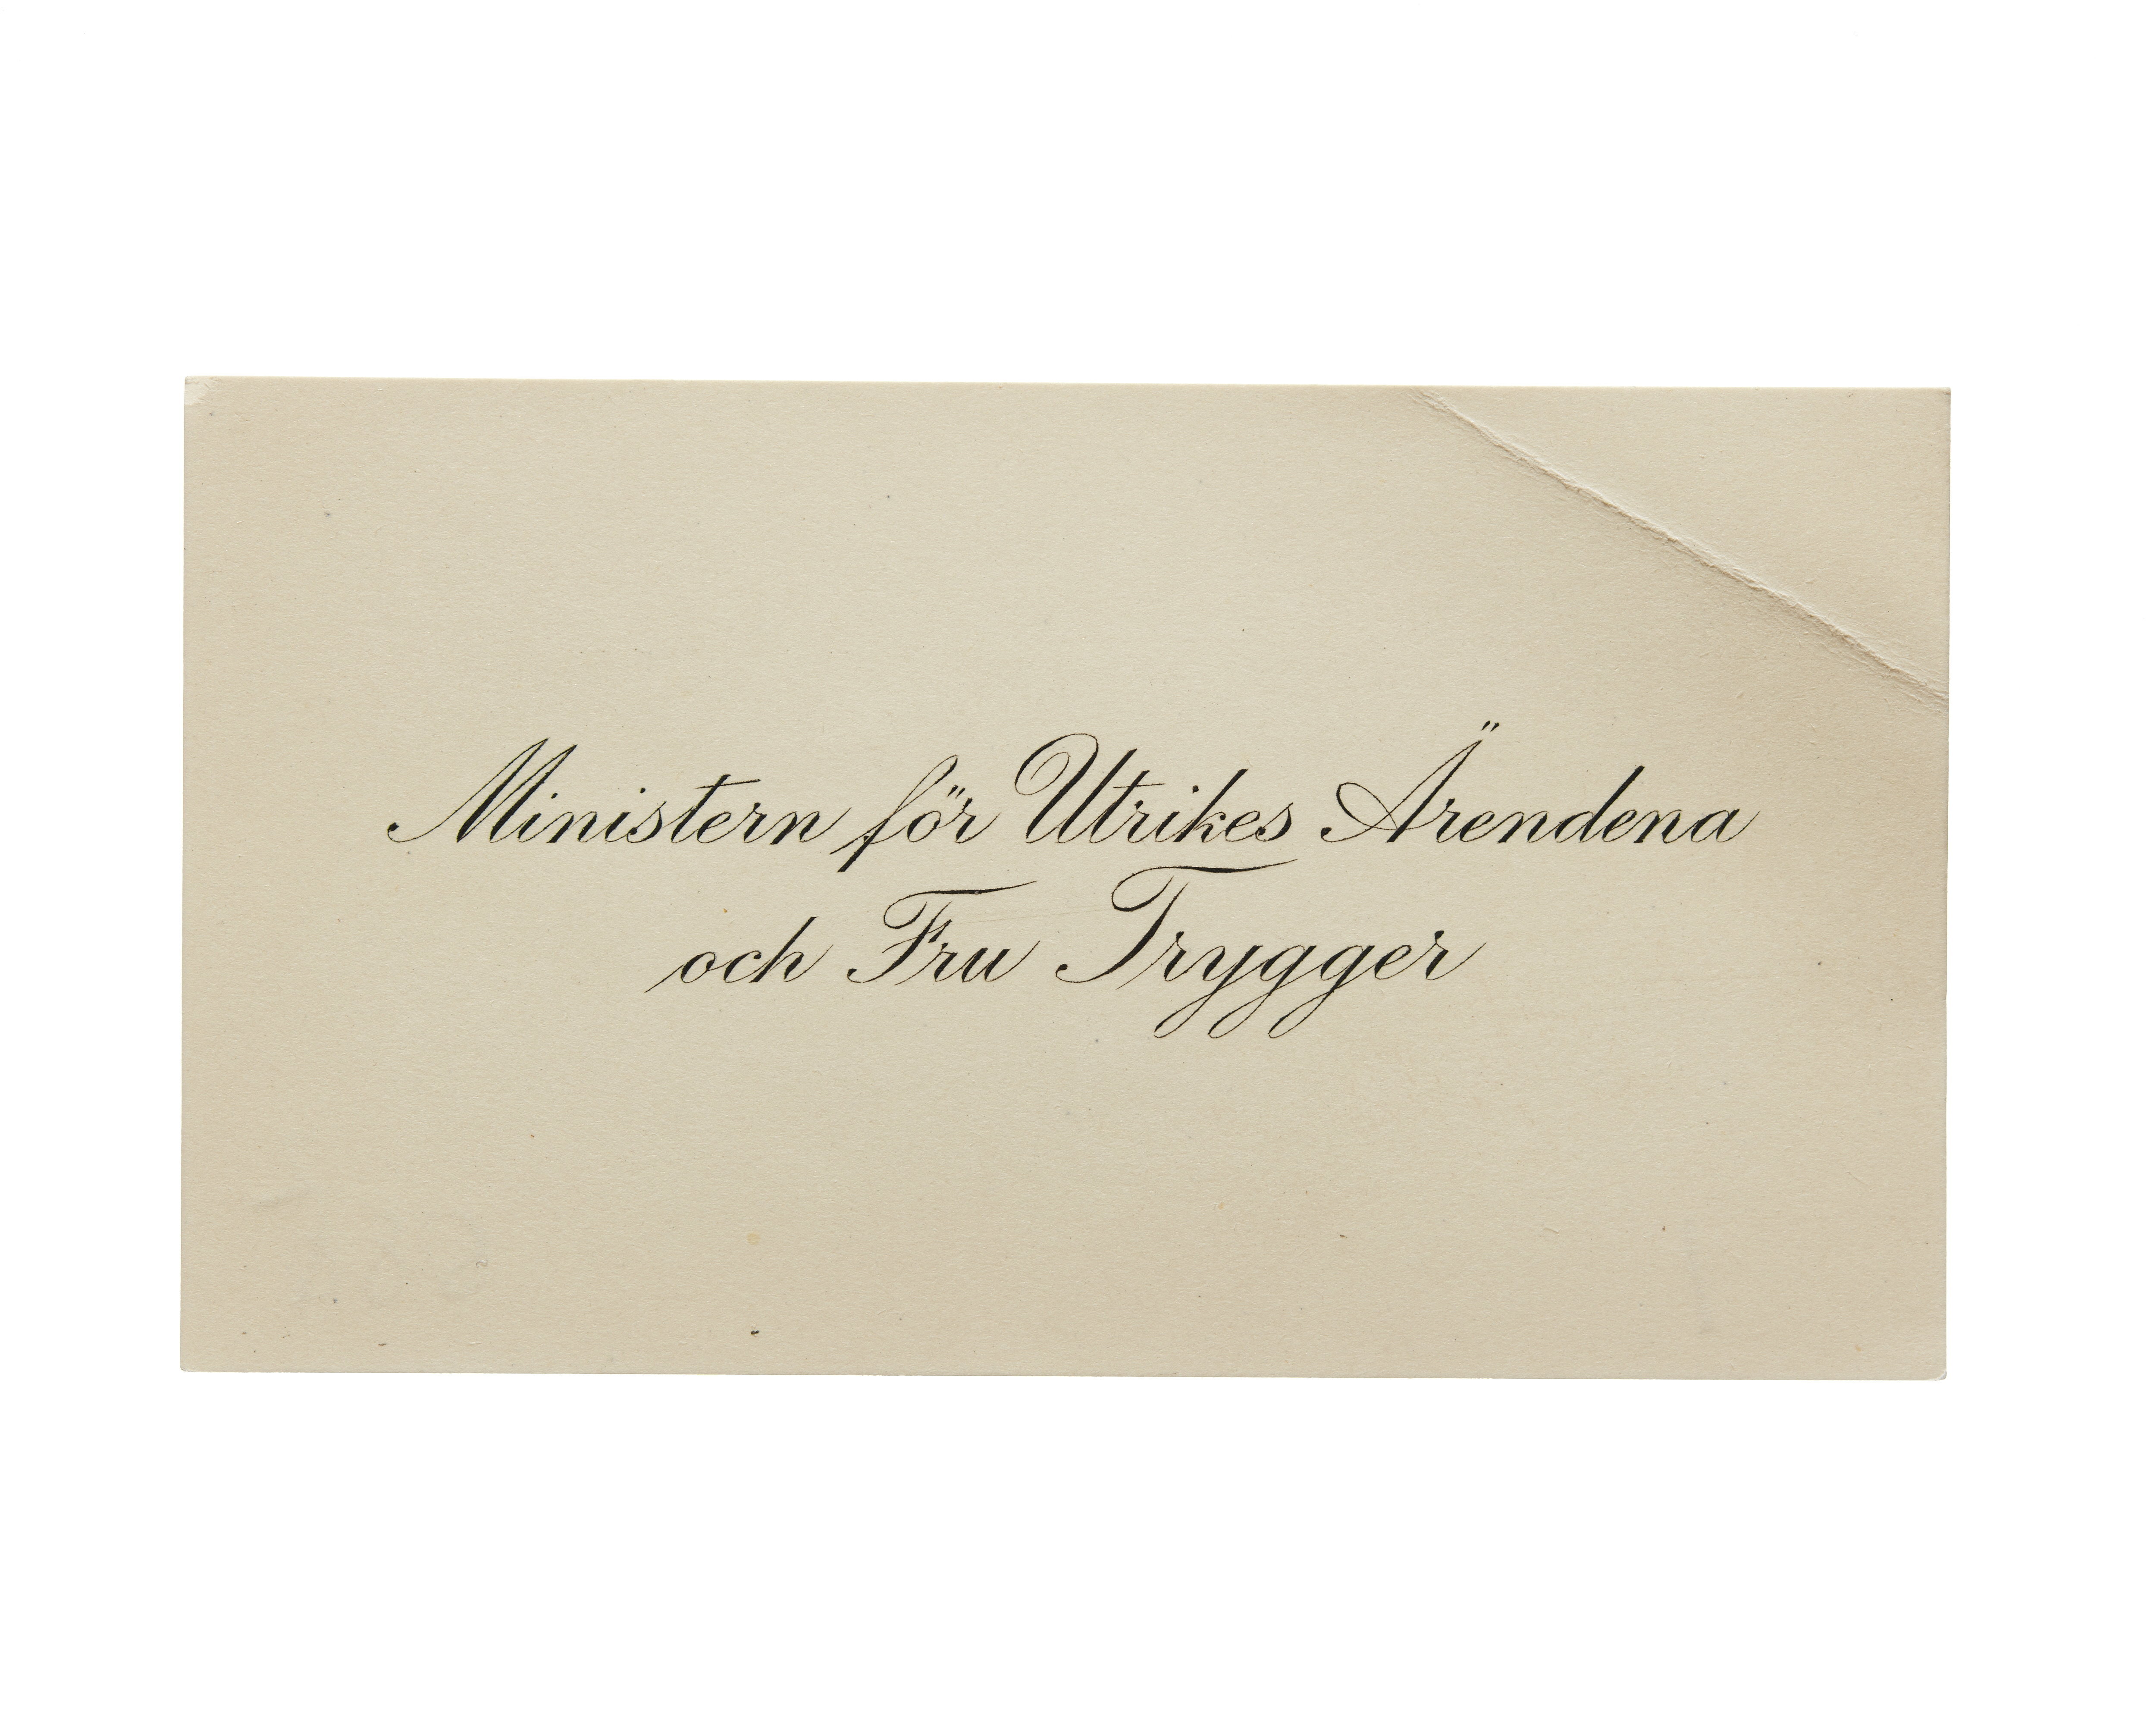 Ministern för Utrikes Ärendena
och Fru Trygger